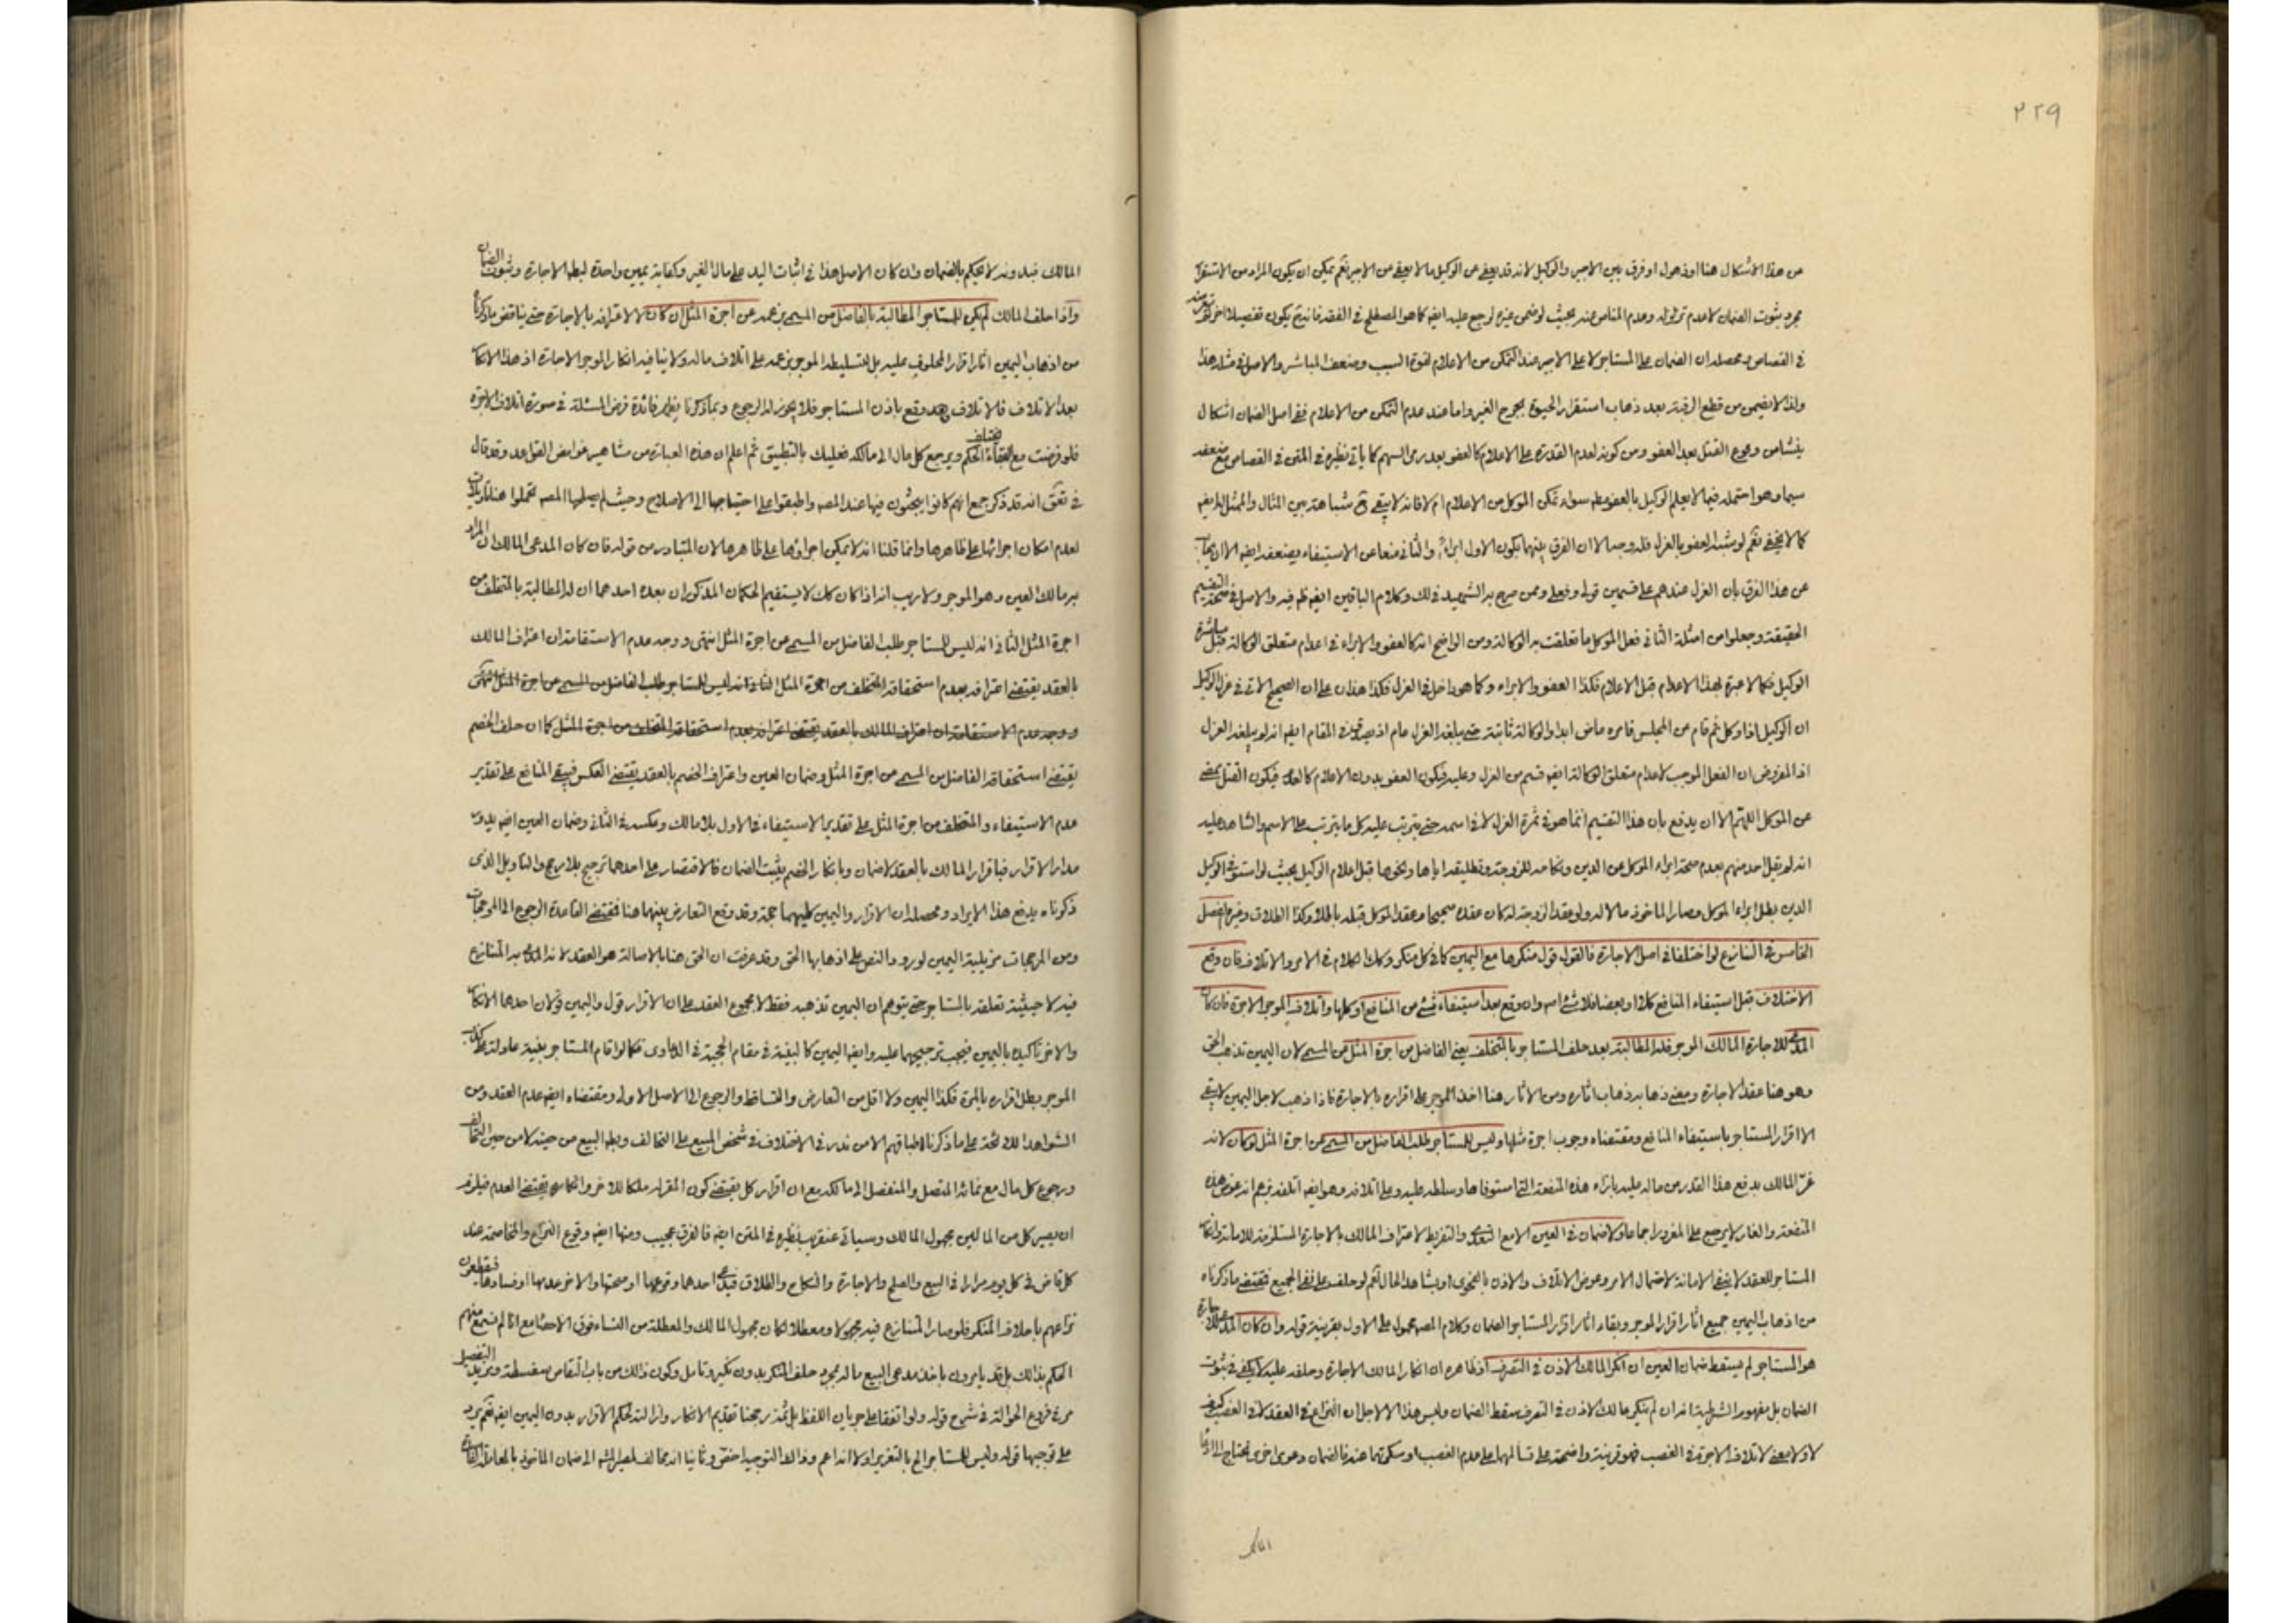 ٢٢٩
من هذا الاشكال هنا او ذهول او فرق بين الاجير والوكيل لانه قد يعفى عن الوكيل ما لا يعفى من الاجير نعم يمكن ان يكون المراد من الاستقرار
مجرد ثبوت الضمان لا عدم تزلزله وعدم المناص عنه بحيث لو ضمن غيره لرجع عليه ايضا كما هو المصطلح في الغصب فانه يكون تفصيلا اخر
في القصاص ومحصله ان الضمان على المستاجر لا على الاجير عند التمكن من الاعلام لقوة السبب وضعف المباشر والاصل في مثله هذا
ولذا لا يضمن من قطع الرقبة بعد ذهاب استقرار الحيوة بجرح الغير واما عند عدم التمكن من الاعلام ففي اصل الضمان اشكال
ينشا من وقوع القتل بعد العفو ومن كونه لعدم القدرة على الاعلام كالعفو بعد رمي السهم كما ياتي نظيره في المتن في القصاص
سيما وهو احتمله فيما لا يعلم الوكيل بالعفو مطه سواء تمكن الموكل من الاعلام ام لا فانه لا يبقى ح مشابهة بين المثال والممثل له ايضا
كما لا يخفى نعم لو شبه العفو بالعزل فله وجه الا ان الفرق بينهما بكون الاول ابراء والثاني منعا عن الاستيفاء يضعفه ايضا الا ان يجاب
عن هذا الفرق بان العزل عندهم على قسمين قولي وفعلي وممن صرح به الشهيد في لك وكلام الباقين ايضا ظم فيه والاصل في صحة التقسيم
الحقيقة وجعلوا من امثلة الثاني فعل الموكل ما تعلقت به الوكالة ومن الواضح انه كالعفو والابراء في اعدام متعلق الوكالة قبل مباشرة
الوكيل فكما لا عبرة بهذا الاعدام قبل الاعلام فكذا العفو والابراء وكما هو داخل في العزل فكذا هذان على ان الصحيح الاتي في عزل الوكيل
ان الوكيل اذا وكل ثم قام عن المجلس فامره ماض ابدا والوكالة ثابتة حتى يبلغه العزل عام اذ يصدق في المقام ايضا انه لم يبلغه العزل
اذ المفروض ان الفعل الموجب لاعدام متعلق الوكالة ايضا قسم من العزل وعليه فيكون العفو بدون الاعلام كالعدم فيكون القتل بمضي
عن الموكل اللهم الا ان يدفع بان هذا التقسيم انما هو في ثمرة العزل لا في اسمه حتى يترتب عليه كل ما يترتب على الاسم والشاهد عليه
انه لم يقل احد منهم بعدم صحة ابراء الموكل عن الدين ونكاحه للزوجة وتطليقه اياها ونحوها قبل اعلام الوكيل بحيث لو استوفى الوكيل
الدين بطل ابراء الموكل وصار الماخوذ مالا له ولو عقد الزوجة له كان عقده صحيحا وعقد الموكل قبله باطلا وكذا الطلاق وغيره الفصل
الخامس في التنازع لو اختلفا في اصل الاجارة فالقول قول منكرها مع اليمين كما في كل منكر وكذا الكلام في الامر والاتلاف فان وقع
الاختلاف قبل استيفاء المنافع كلا او بعضا فلا شئ له وان وقع بعد استيفاء شئ من المنافع او كلها واتلاف الموجر الاجرة فان كان
المدعي للاجارة المالك الموجر فله المطالبة بعد حلف المستاجر بالمتخلف يعني الفاضل من اجرة المثل عن المسمى لان اليمين تذهب الحق
وهو هنا عقد الاجارة ومعنى ذهابه ذهاب اثاره ومن الاثار هنا اخذ الموجر على اقراره بالاجارة فاذا ذهب لاجل اليمين لا يبقى
الا اقرار المستاجر باستيفاء المنافع ومقتضاه وجوب اجرة مثلها وليس للمستاجر طلب الفاضل من المسمى عن اجرة المثل لو كان لانه
غر المالك بدفع هذا القدر من ماله عليه بازاء هذه المنفعة التي استوفاها وسلطه عليه وعلى اتلافه وهو ايضا اتلفه بزعم انه عوض هذه
المنفعة والغار لا يرجع على المغرور اجماعا ولا ضمان في العين الا مع التعدي والتفريط لاعتراف المالك بالاجارة المستلزمة للامانة وانكار
المستاجر للعقد لا ينفي الامانة لاحتمال الامر وعوض الاتلاف والاذن بالفحوى او بشاهد الحال نعم لو حلف على نفي الجميع فمقتضى ما ذكرناه
من اذهاب اليمين جميع اثار اقرار الموجر وبقاء اثار اقرار المستاجر الضمان وكلام المصه محمول على الاول بقرينة قوله وان كان المدعي للاجارة
هو المستاجر لم يسقط ضمان العين ان انكر المالك الاذن في التصرف اذ ظاهره ان انكار المالك الاجارة وحلفه عليه لا يكفي في ثبوت
الضمان بل مفهوم الشرطية انه ان لم ينكر مالك الاذن في التصرف سقط الضمان وليس هذا الا لاجل ان النزاع في العقد لا في الغصب كيف
لا ولا معنى لاتلاف الاجرة في الغصب فهو قرينة واضحة على تسالمهما على عدم الغصب او سكوتهما عنه فالضمان دعوى اخرى تحتاج الى
المالك
المالك فبدونه لا يحكم بالضمان وان كان الاصل هذا في اثبات اليد على مال الغير وكفاية يمين واحدة لبطه الاجارة وثبوت الضمان
واذا حلف المالك لم يكن للمستاجر المطالبة بالفاضل من المسمى بزعمه عن اجرة المثل ان كان لا لاعترافه بالاجارة حتى يناقض ما ذكرنا
من اذهاب اليمين اثار اقرار المحلوف عليه بل لتسليطه الموجر بزعمه على اتلاف ماله ولا ينافيه انكار الموجر الاجارة اذ هذا الانكار
بعد الاتلاف فالاتلاف قد وقع باذن المستاجر فلا يجوز له الرجوع وبما ذكرنا يظهر فائدة فرض المسئلة في صورة اتلاف الاجرة
فلو فرضت مع بقاء يختلف الحكم ويرجع كل مال الى مالكه فعليك بالتطبيق ثم اعلم ان هذه العبارة من مشاهير غوامض القواعد وقد قال
في انه قد ذكر جمع انهم كانوا يبحثون فيها عند المصه واطبقوا على احتياجها الى الاصلاح وحيث لم يصلحها المصه تمحلوا هنا تاويلات
لعدم امكان اجرائها على ظاهرها وانما قلنا انه لا يمكن اجراؤها على ظاهرها لان المتبادر من قوله فان كان المدعي المالك ان المراد
به مالك العين وهو الموجر ولا ريب انه اذا كان كك لا يستقيم الحكمان المذكوران بعده احدهما ان له المطالبة بالمتخلف من
اجرة المثل الثاني انه ليس للمستاجر طلب الفاضل من المسمى عن اجرة المثل انتهى ووجه عدم الاستقامة ان اعتراف المالك
بالعقد يقتضي اعترافه بعدم استحقاقه المتخلف من اجرة المثل الثاني انه ليس للمستاجر طلب الفاضل من المسمى عن اجرة المثل انتهى
ووجه عدم الاستقامة ان اعتراف المالك بالعقد يقتضي اعترافه بعدم استحقاقه المتخلف من اجرة المثل كما ان حلف الخصم
يقتضي استحقاقه الفاضل من المسمى من اجرة المثل وضمان العين واعتراف الخصم بالعقد يقتضي العكس فيبقى المنافع على تقدير
عدم الاستيفاء والمتخلف من اجرة المثل على تقدير الاستيفاء في الاول بلا مالك وعكسه في الثاني وضمان العين ايضا يدور
مدار الاقرار فباقرار المالك بالعقد لا ضمان وبانكار الخصم يثبت الضمان فالاقتصار على احدهما ترجيح بلا مرجح والتاويل الذي
ذكرناه يدفع هذا الايراد ومحصله ان الاقرار واليمين كليهما حجة وقد وقع التعارض بينهما هنا فمقتضى القاعدة الرجوع الى المرجحات
ومن المرجحات مزيلية اليمين لورود النص على اذهابها الحق وقد عرفت ان الحق هنا بالاصالة هو العقد لانه المتنازع
فيه لا حيثية تعلقه بالمستاجر حتى يتوهم ان اليمين تذهبه فقط لا مجموع العقد على ان الاقرار قول واليمين قولان احدهما الانكار
والاخر تاكيده باليمين فيجب ترجيحهما عليه وايضا اليمين كالبينة في مقام الحجية في الدعاوى فكما لو اقام المستاجر بينة عادلة على كذب
الموجر بطل اقراره بالمرة فكذا اليمين ولا اقل من التعارض والتساقط والرجوع الى الاصل الاولي ومقتضاه ايضا عدم العقد ومن
الشواهد اللائحة على ما ذكرنا اطباقهم الا من ندر في الاختلاف في شخص المبيع على التحالف وبطه البيع من حينه لا من حين التحالف
ورجوع كل مال مع نمائه المتصل والمنفصل الى مالكه مع ان اقرار كل يقتضي كون المقر به ملكا للاخر وانكاره يقتضي العدم فيلزم
ان يصير كل من المالين مجهول المالك وسياتي عنقريب نظيره في المتن ايضا فالفرق عجيب ومنها ايضا وقوع النزاع والمخاصمة عند
كل قاض في كل يوم مرارا في البيع والصلح والاجارة والنكاح والطلاق فيدعي احدهما وقوعها او صحتها والاخر عدمها او فسادها فيقطعون
نزاعهم باحلاف المنكر فلو صار المتنازع فيه مجهولا ومعطلا لكان مجهول المالك والمعطلة من النساء فوق الاحصاء مع انا لم نسمع منهم
الحكم بذلك بل قد يامرون باخذ مدعي البيع ماله بمجرد حلف المنكر بدون نكير وتامل وكون ذلك من باب التقاص سفسطة ومزيد التفصيل
مر في فروع الحوالة في شرح قوله ولو اتفقا على جريان اللفظ بل ثمة رجحنا تقديم الانكار وازالته لحكم الاقرار بدون اليمين ايضا نعم يرد
على توجيهنا قوله وليس للمستاجر الخ بالتغرير اولا انه اعم وذلك التوجيه اخص وثانيا انه مخالف لمصير المشه الى ضمان الماخوذ بالمعاملة الفاسدة